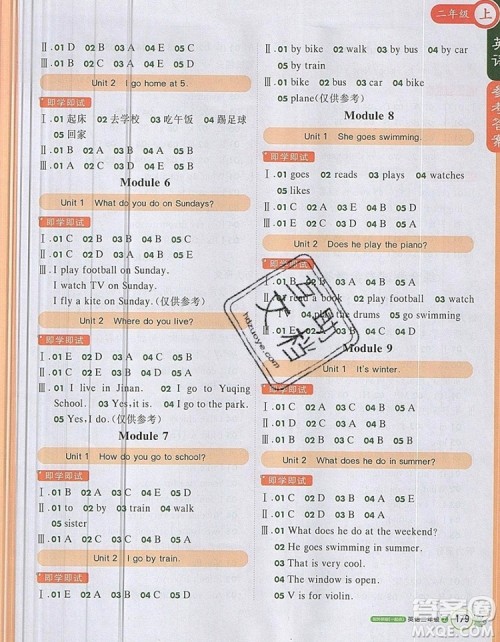 二年级 上
英语
参考答案
Ⅱ.01 D 02 B 03 A 04 E 05 C
Ⅲ.01 C 02 D 03 A 04 B
Unit 2 I go home at 5.
即学即试
Ⅰ.01 起床 02 去学校 03 吃午饭 04 踢足球
05 回家
Ⅲ.01 B 02 A 03 D 04 C 05 E
Module 6
Unit 1 What do you do on Sundays?
即学即试
Ⅰ.01 C 02 D 03 B 04 A
Ⅱ.01 A 02 C 03 B 04 D
Ⅲ. I play football on Sunday.
I watch TV on Sunday.
I fly a kite on Sunday.(仅供参考)
Unit 2 Where do you live?
即学即试
Ⅰ.01 E 02 D 03 A 04 B 05 C
Ⅲ.01 I live in Jinan. 02 I go to Yuqing
School. 03 Yes,it is. 04 I go to the park.
05 Yes,I do.(仅供参考)
Module 7
Unit 1 How do you go to school?
即学即试
Ⅰ.01 B 02 A 03 C 04 E 05 D
Ⅱ.01 to 02 by 03 do 04 walk
05 sister
Ⅲ.01 B 02 A 03 D 04 C
Unit 2 I go by train.
即学即试
Ⅰ.01 D 02 A 03 B 04 E 05 C
Ⅱ.01 by bike 02 walk 03 by bus 04 by car
05 by train
Ⅲ.01 bike 02 bus 03 car 04 walk
05 plane(仅供参考)
Module 8
Unit 1 She goes swimming.
即学即试
Ⅰ.01 goes 02 reads 03 plays 04 watches
05 likes
Ⅱ.01 C 02 A 03 B 04 E 05 D
Unit 2 Does he play the piano?
即学即试
Ⅰ.01 C 04 B 05 D
Ⅱ.01 read a book
04 play the drums 05 go swimming
Module 9
Unit 1 It's winter.
即学即试
Ⅰ.01 C 02 A 03 D 04 B 05 E
Ⅱ.01 D 02 C 03 B 04 A
Ⅲ.01 B 02 C 03 E 04 D 05 A
Unit 2 What does he do in summer?
即学即试
Ⅰ.01 A 02 C 03 B 04 D
Ⅱ.01 B 02 A 03 B 04 A 05 B
Ⅲ.01 What does he do at the weekend?
02 He goes swimming in summer.
03 That is very cool.
04 The window is open.
05 I walk in the rain.
179
互助文档
huzuoye.com